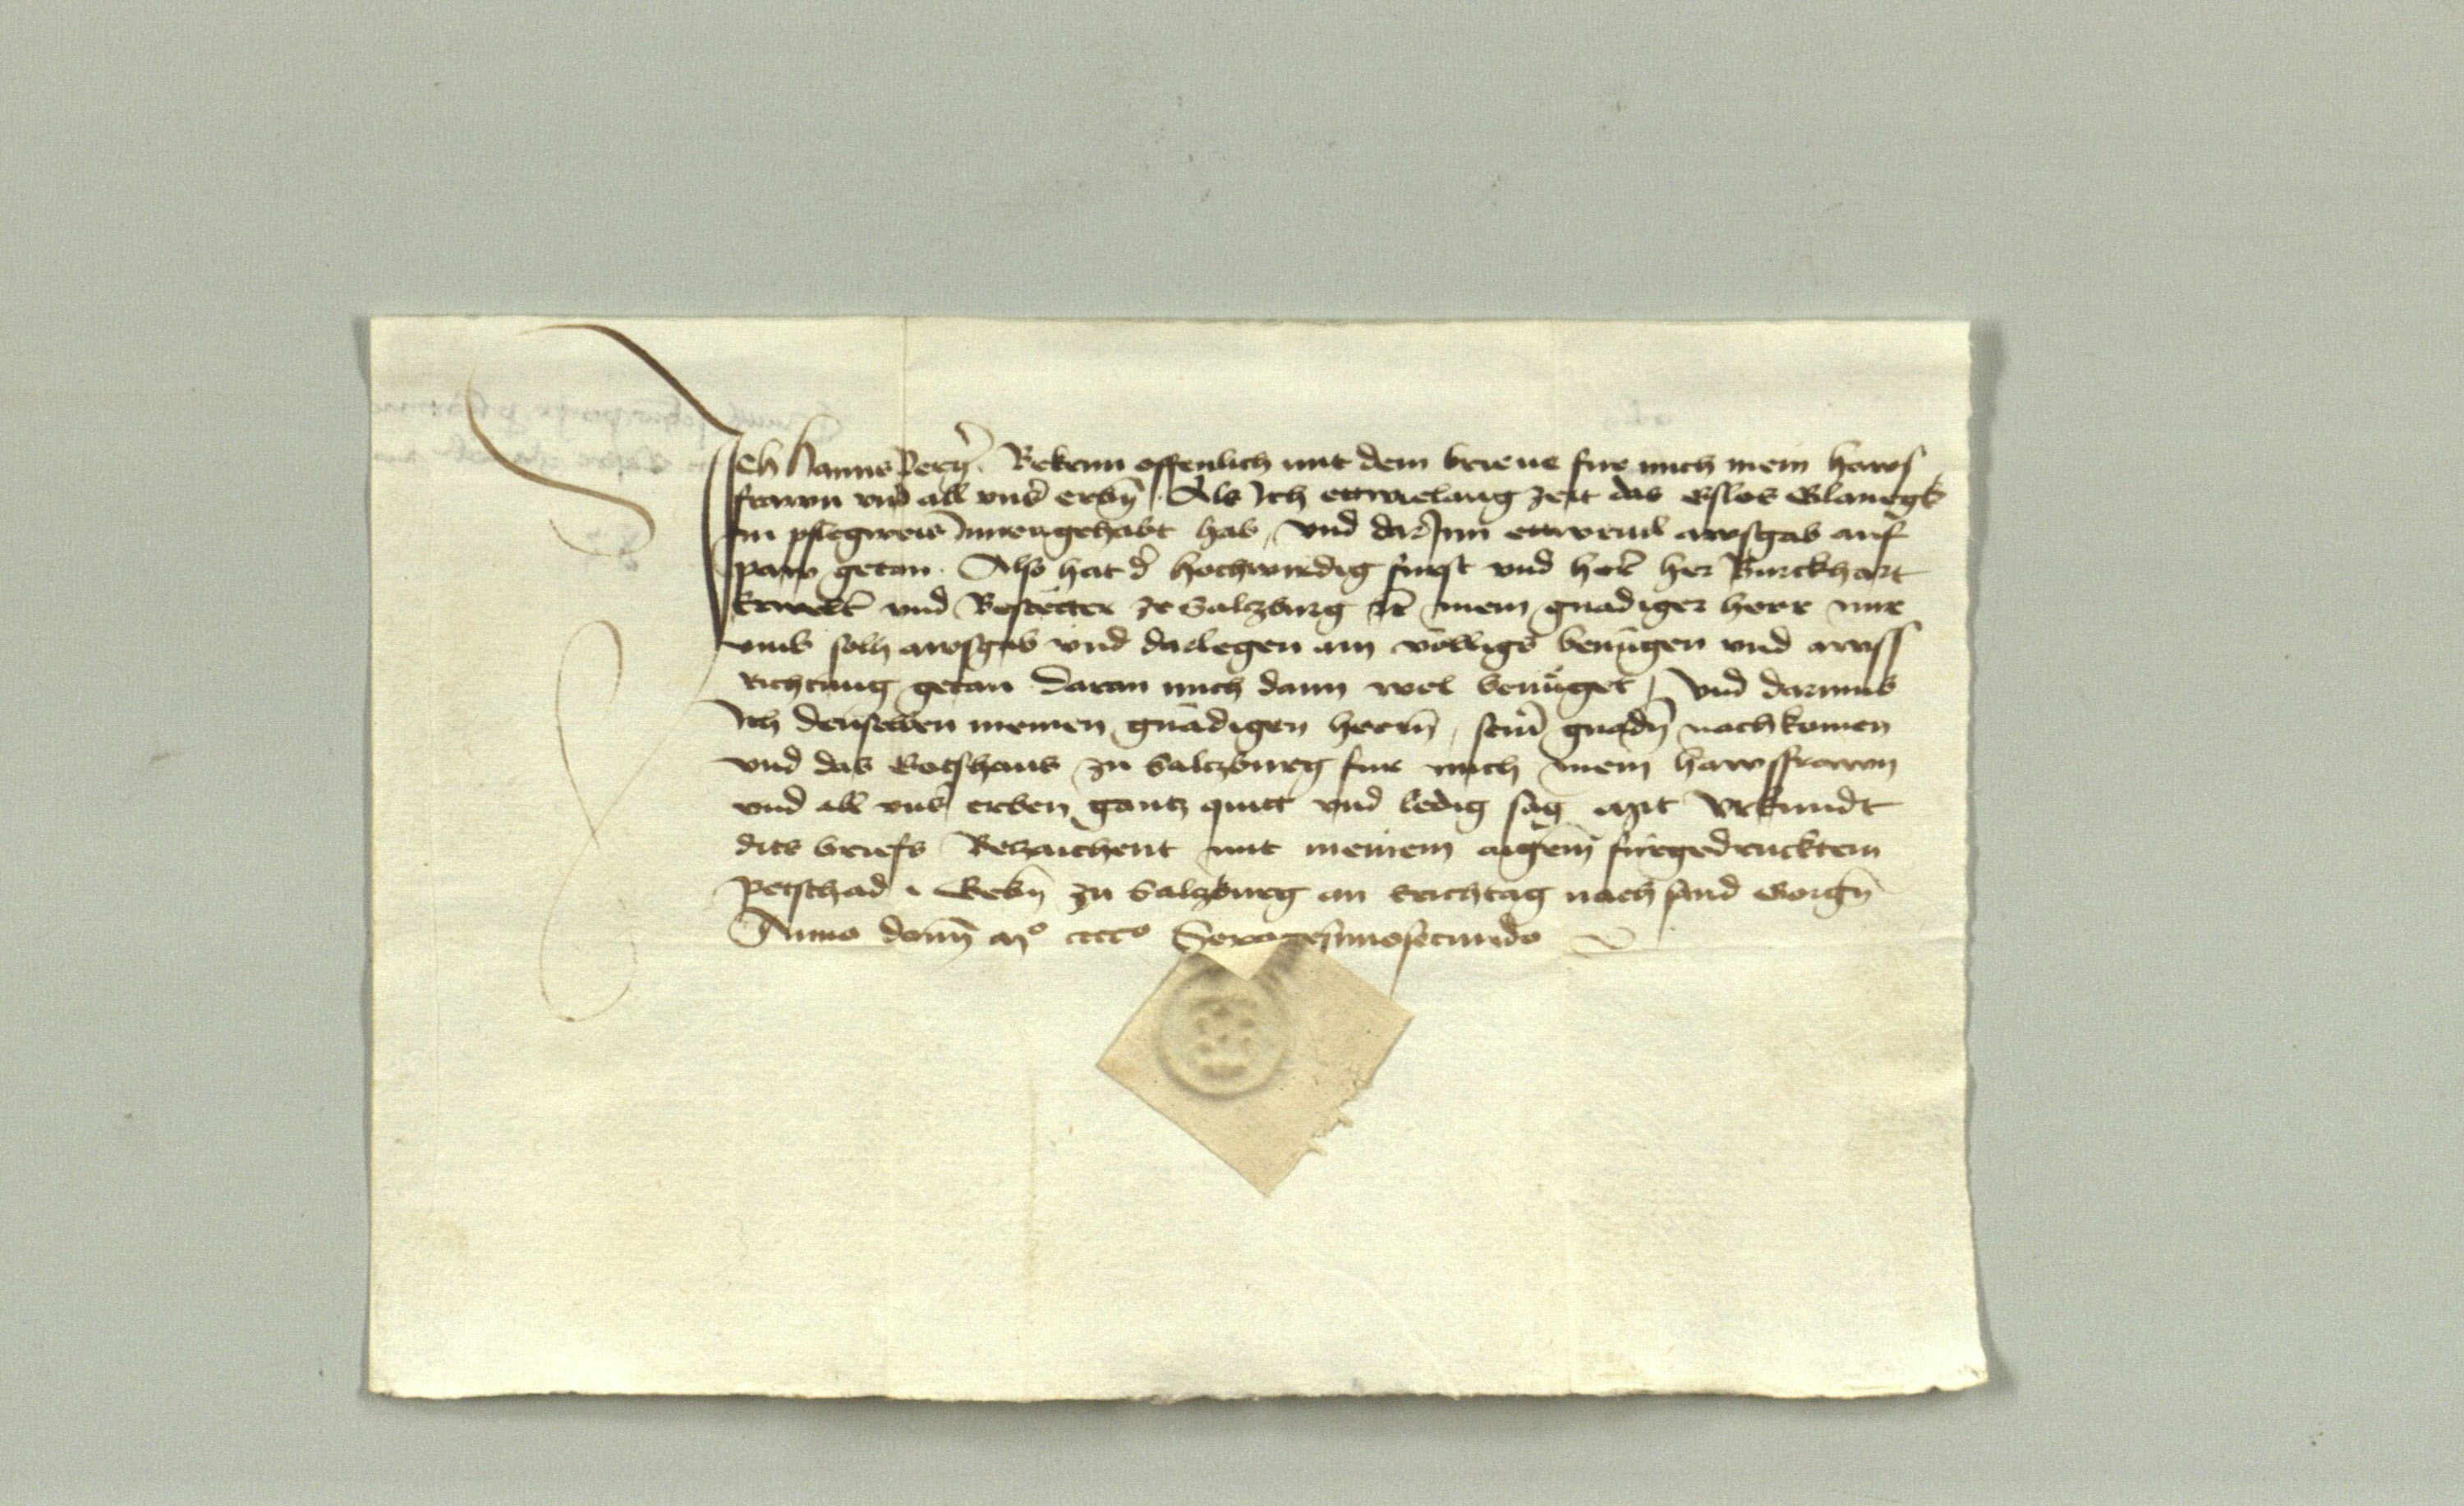 Ich Hanns Perg̃ Bekenn offenlich mit dem brieue fur mich mein haws
frawn vnd all vns̃ erbn̄ Als Ich ettwielang zeit das Gslos Glanegk
Inn pflegweis Innengehabt hab, vnd dar Inn ettweuil awsgab auf
paw getan. Also hat d̃ hochwirdig furst vnd her̃ her Burckhart
Erwelt̃ vnd Bestetter ze Salczburg mein gnadiger herr mir
vmb solh awsgab vnd darlegen ain völligs benügen vnd awss
richtung getan daran mich dann wol benüget, Vnd darumb
Ich denselben meinen gnädigen herrn̄, sein̄ gnadn̄ nachkomen
vnd das Gotshaus zu Salczburg fur mich mein hawsfrawn
vnd all vns̃ erben gantz quitt vnd ledig sag Mit Vrkundt
dits briefs Bezaichent mit meinem aigem̄ fürgedrucktem
petschad. Gebn̄ zu Salzburg an Erichtag nach sand Gorgn̄
Anno domn̄ Mº ccccº Sexagesimosecundo